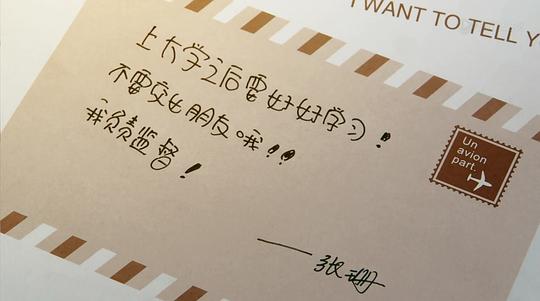 I WANT TO TELL Y
上大学之后要好好学习!
不要交女朋友哦!!
我负责监督!
Un
avion
part.
——张珊